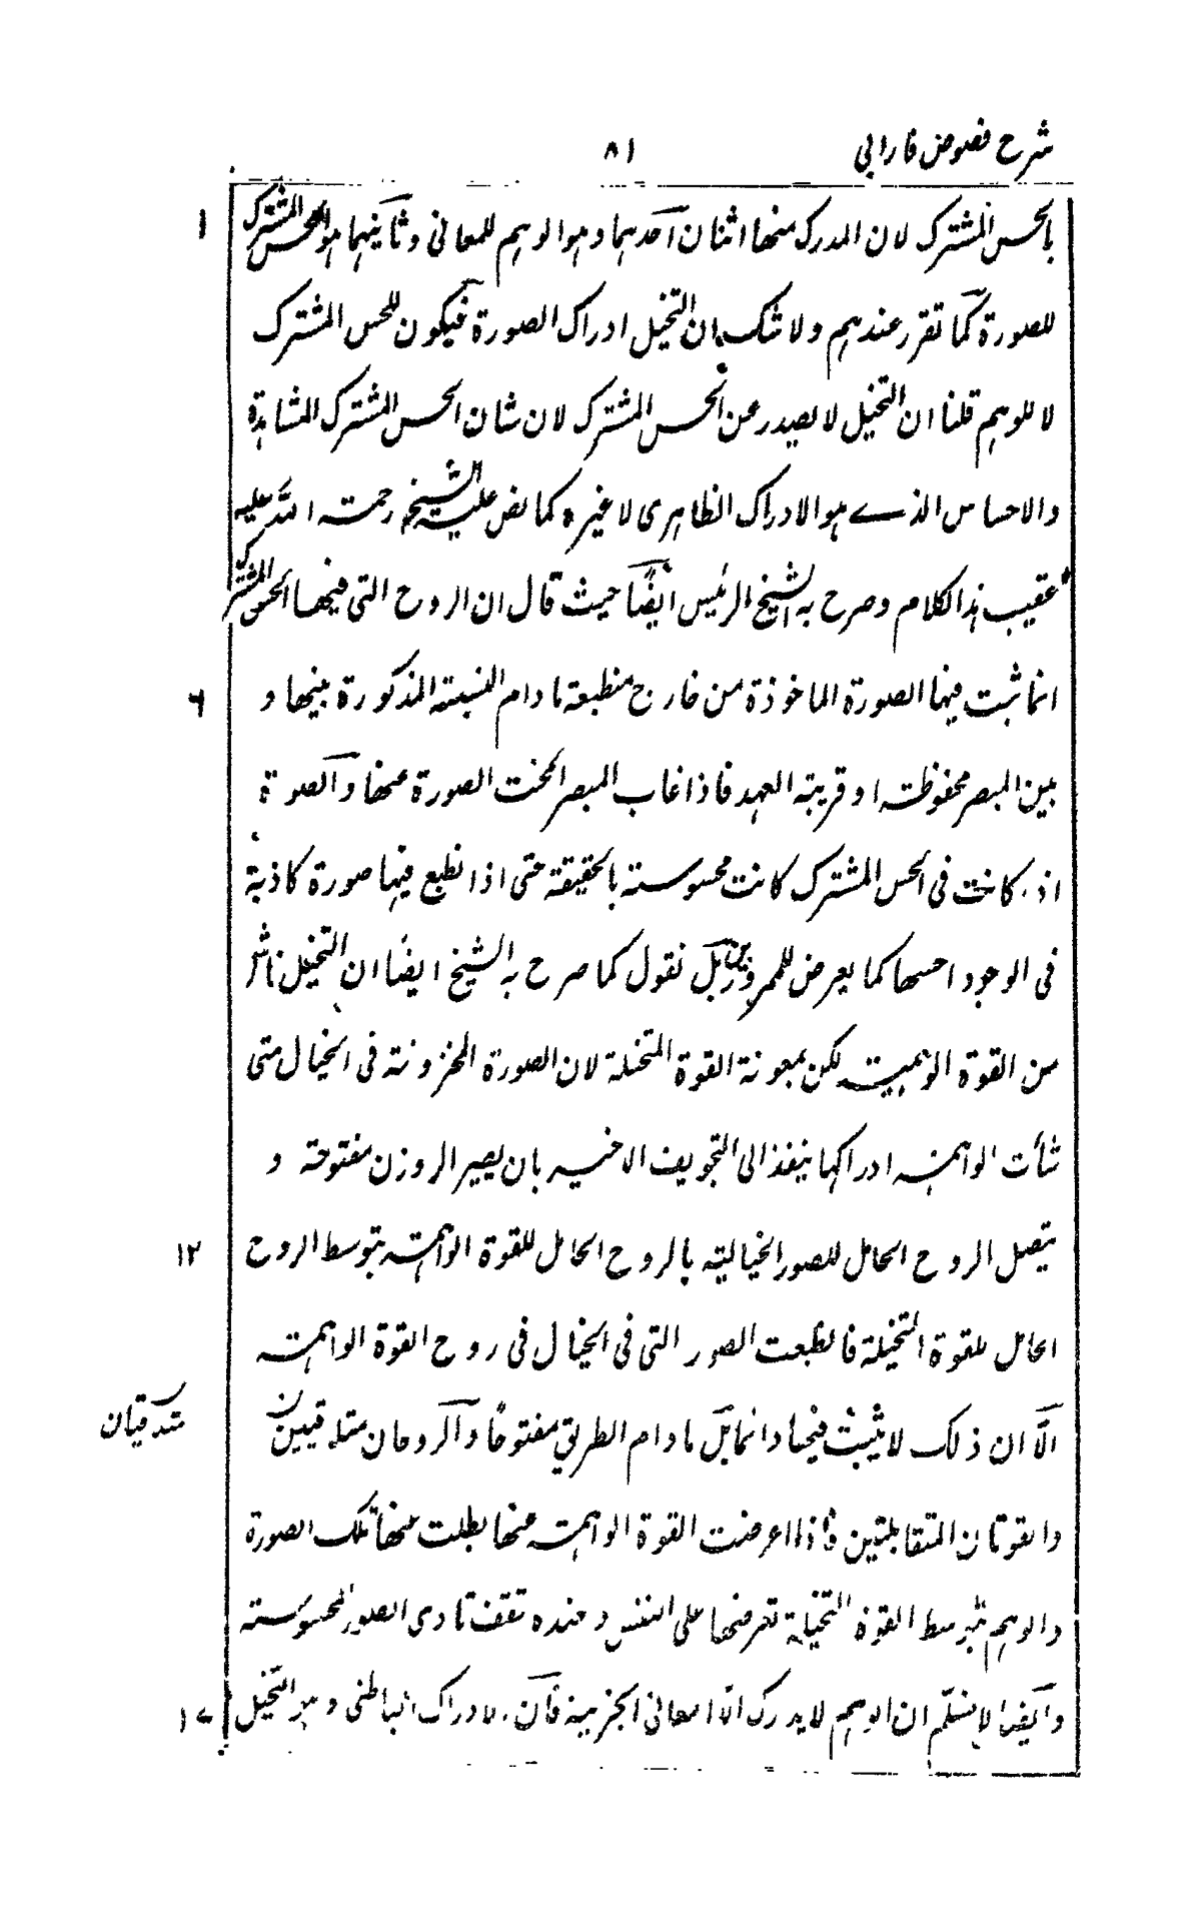 شرح فصوص فارابي
٨١
بالحس المشترك لان المدرك منها اثنان احدهما وهو الوهم للمعانى وثانيهما هو الحس المشترك
١
للصورة كما تقرر عندهم ولا شك ان التخيل ادراك الصورة فيكون للحس المشترك
لا للوهم قلنا ان التخيل لا يصدر عن الحس المشترك لان شان الحس المشترك المشاهدة
والاحساس الذے هو الادراك الظاهرى لا غيره كما نص عليه الشيخ رحمة الله عليه
عقيب هذا الكلام وصرح به الشيخ الرئيس ايضًا حيث قال ان الروح التى فيها الحس المشترك
انما ثبت فيها الصورة الماخوذة من خارج منطبعة مادام النسبة المذكورة بينها و
٦
بين المبصر محفوظة او قريبة العهد فاذا غاب المبصر انمحت الصورة عنها والصورة
اذا كانت فى الحس المشترك كانت محسوسة بالحقيقة حتى اذا نطبع فيها صورة كاذبة
فى الوجود احسها كما يعرض للممرورين بل نقول كما صرح به الشيخ ايضًا ان التخيل ناش
من القوة الوهمية لكن بمعونة القوة المتخيلة لان الصورة المخزونة فى الخيال متى
شأت الواهمة ادراكها ينفذ الى التجويف الاخير بان يصير الروزن مفتوحة و
يتصل الروح الحامل للصور الخيالية بالروح الحامل للقوة الواهمة بتوسط الروح
١٢
الحامل للقوة المتخيلة فانطبعت الصور التى فى الخيال فى روح القوة الواهمة
الّا ان ذلك لا يثبت فيها دائما بل مادام الطريق مفتوحًا والروحان متلاقيين
متلاقيان
والقوتان المتقابلتين فاذا اعرضت القوة الواهمة عنها بطلت عنها تلك الصورة
والوهم بتوسط القوة المتخيلة تعرضها على النفس وعنده تقف تادى الصور المحسوسة
وايضا لا نسلم ان الوهم لا يدرك الّا المعانى الجزيية فان الادراك الباطنى وهو التخيل
١٧